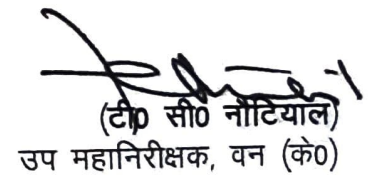 (टी0 सी0 नौटियाल)
उप महानिरीक्षक, वन (के0)